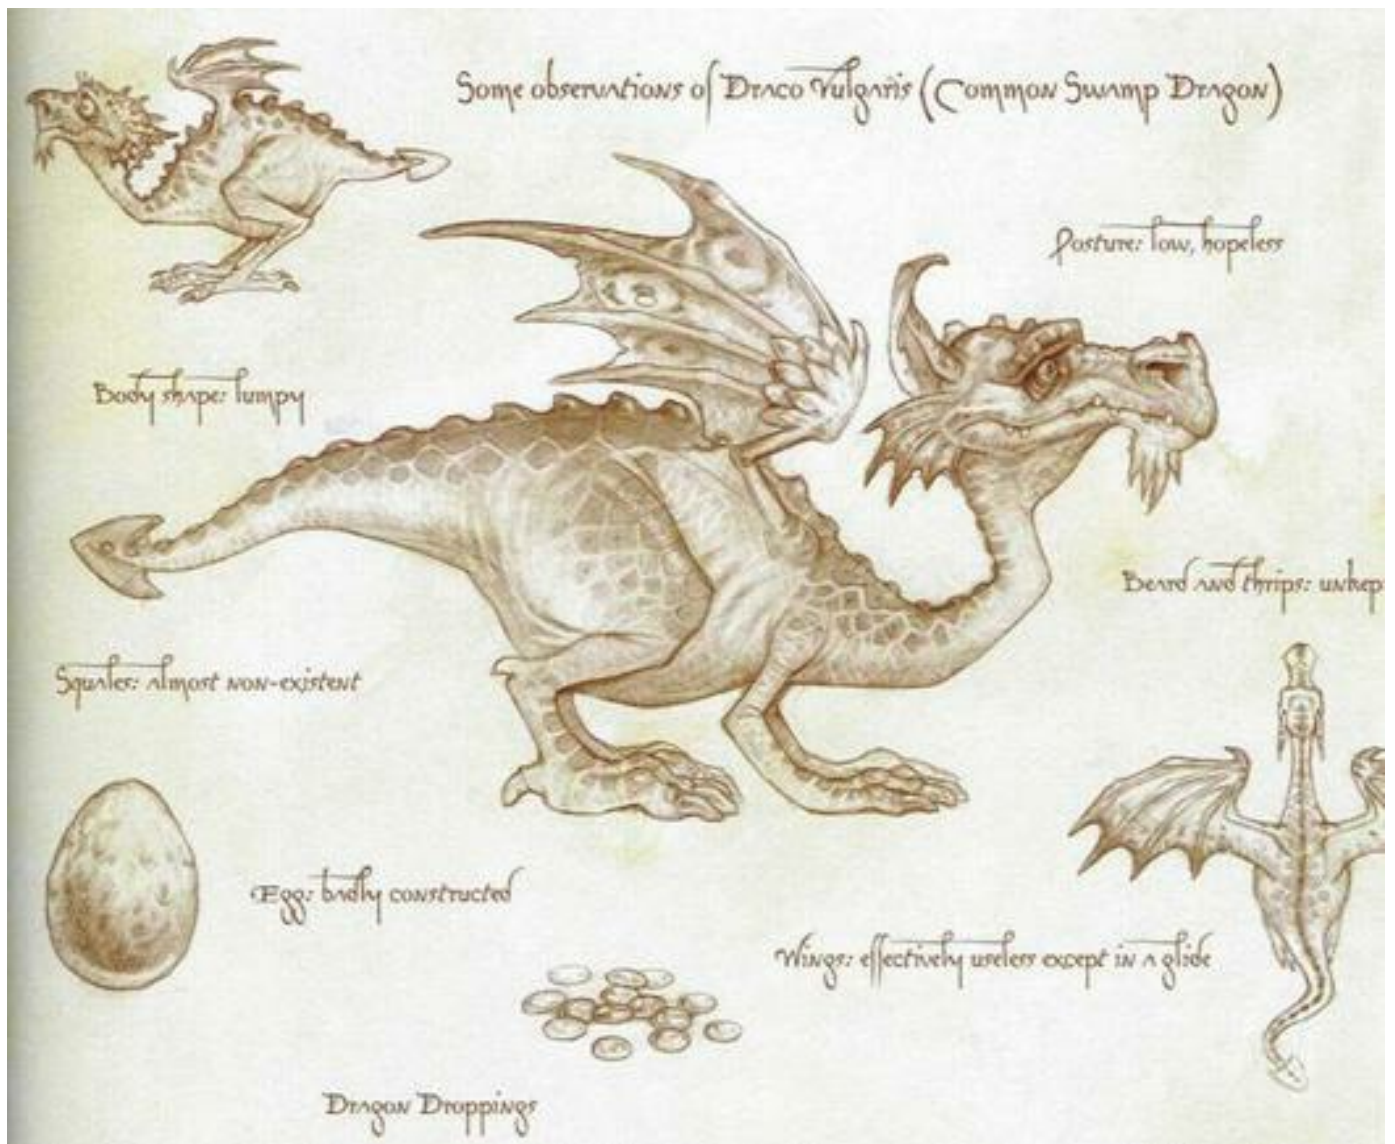 Some observations of Draco Vulgaris (Common Swamp Dragon)
Posture: low, hopeless
Body shape: lumpy
Beard and thrips: unkep
Squales: almost non-existent
Egg: badly constructed
Wings: effectively useless except in a glide
Dragon Droppings